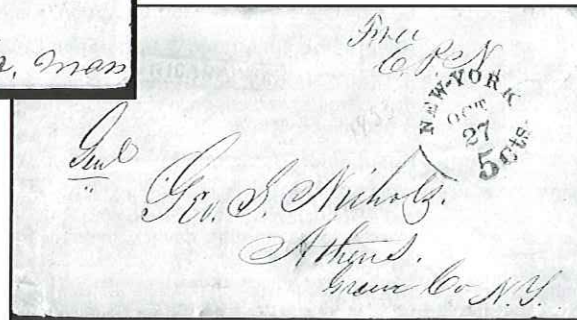 Mass
Free
C. P. N
NEW-YORK
OCT
27
5cts.
Genl
Geo. S. Nichols.
Athens.
Greene Co N.Y.